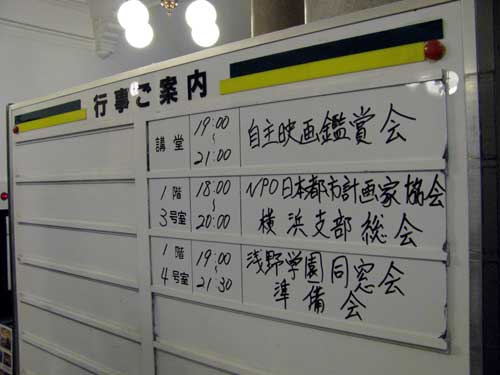 行事ご案内
講堂 19:00~21:00 自主映画鑑賞会
1階3号室 18:00~20:00 NPO日本都市計画家協会
横浜支部総会
1階4号室 19:00~21:30 浅野学園同窓会
準備会